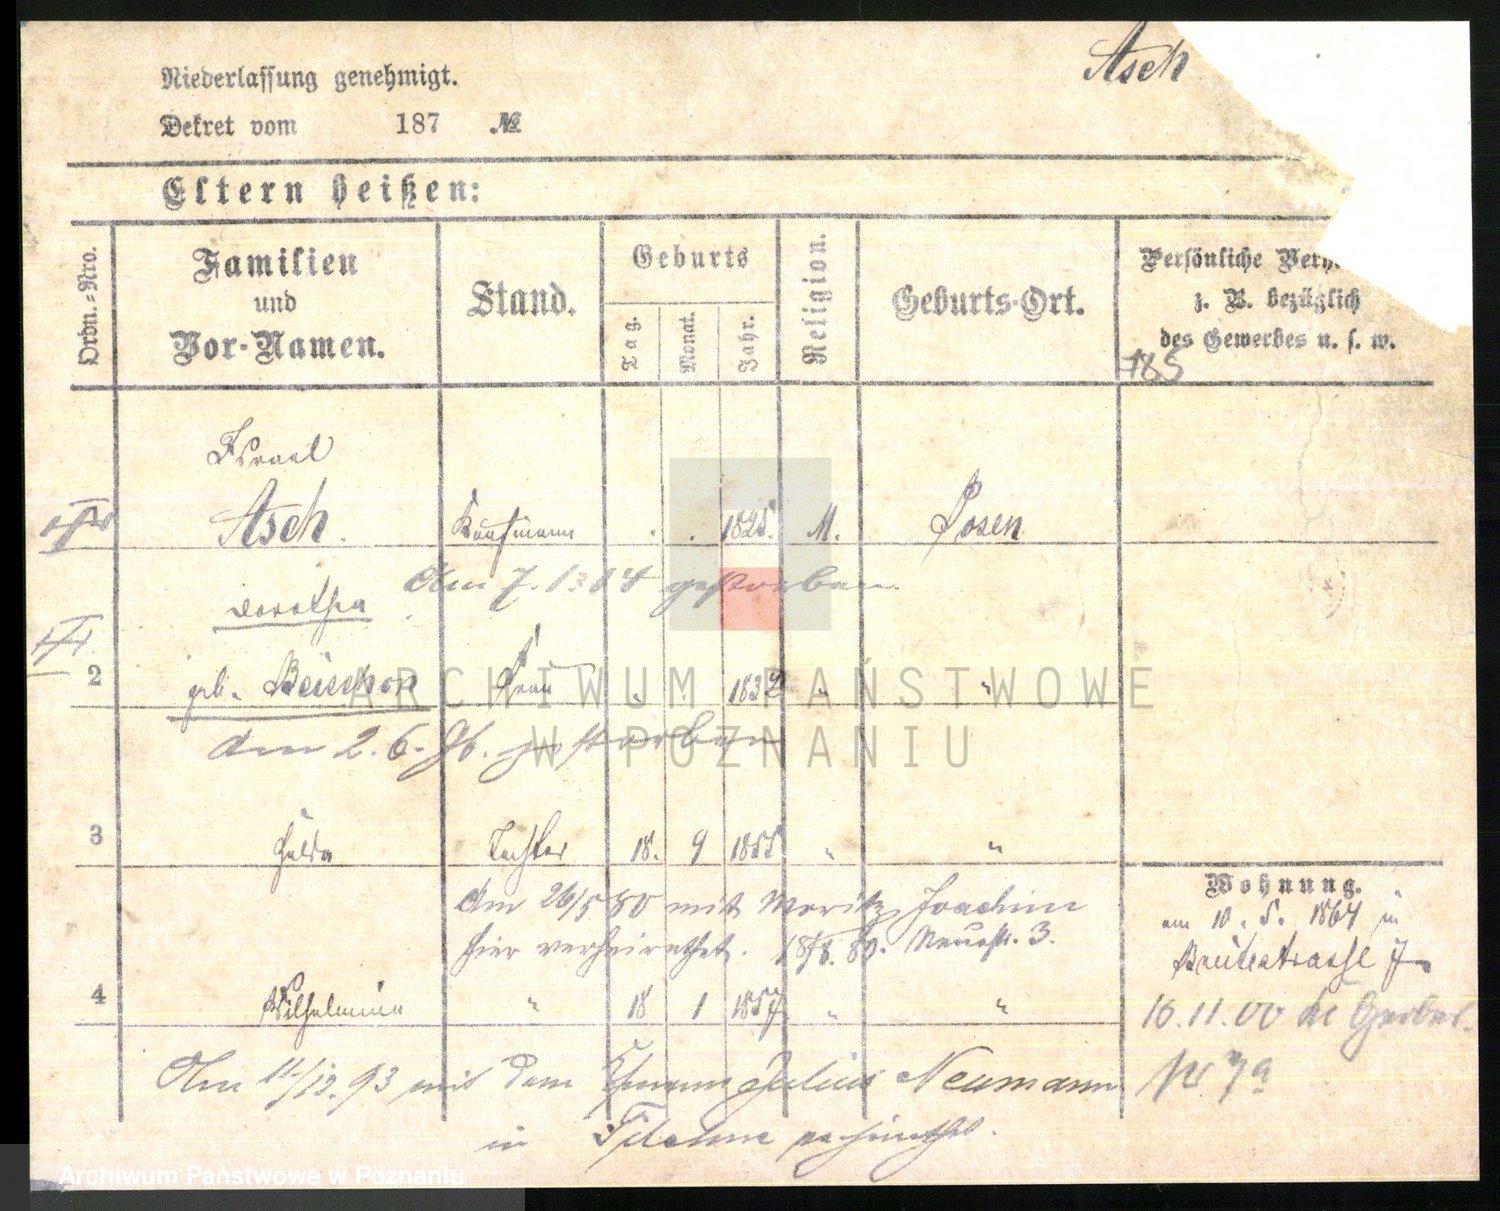 Asch
Niederlassung genehmigt.
Dekret vom 187 №
Eltern heißen:
Ordn.-Nro.
Familien
und
Vor-Namen.
Stand.
Geburts
Tag.
Monat.
Jahr.
Religion.
Geburts-Ort.
Persönliche
z. B. bezüglich
des Gewerbes u. s. w.
785
Israel
Asch. Kaufmann . . 1825. M. Posen
Am 7. gestorben
Dorothea
2 geb. Frau " " "
am 2. 6. 96. gestorben
3 Hulda Tochter 18. 9 1855 " "
Am 26/5 80 mit Moritz Joachim
hier verheirathet. 18/8. 80. Neuestr. 3.
Wohnung.
am 10. 5. 1864 in
Breitestrasse 7
4 Wilhelmine " 18 1 1857 " "
16.11.00 Gerber
7a
Am 11/12. 93 mit dem Julius Neumann
in verheirathet.
ARCHIWUM PAŃSTWOWE
W POZNANIU
Archiwum Państwowe w Poznaniu